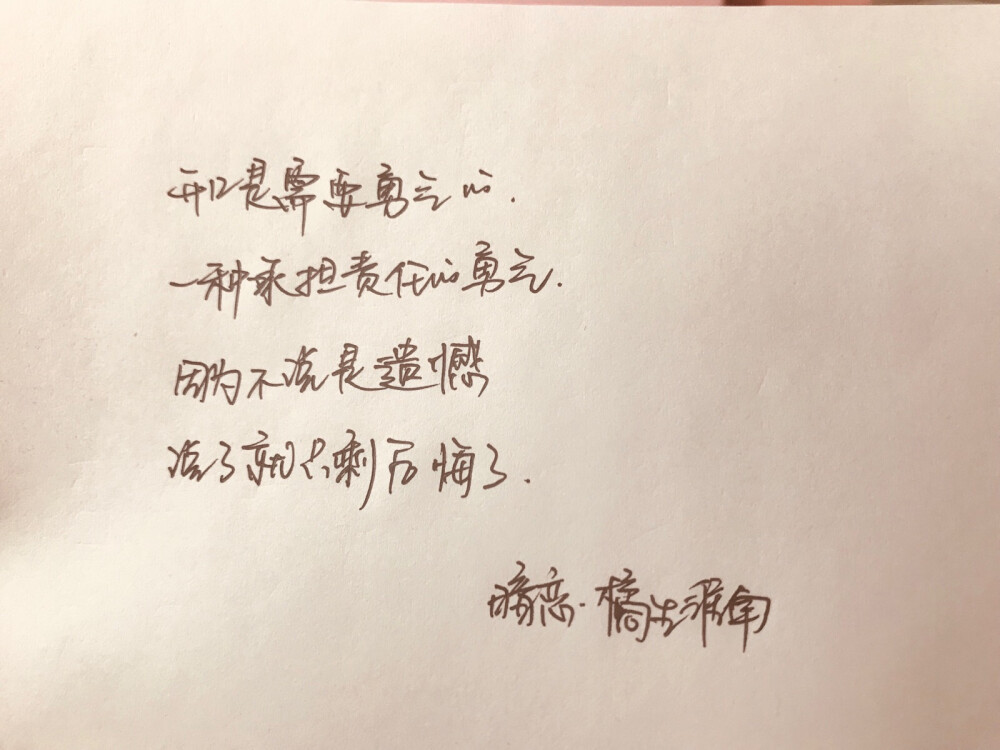 开口是需要勇气的.
一种承担责任的勇气.
因为不说是遗憾
说了就只剩后悔了.
暗恋·橘生淮南